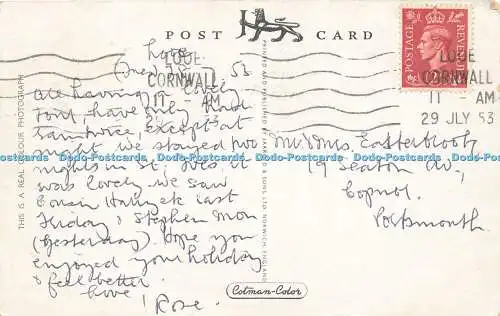 POST CARD
Looe
LOOE
CORNWALL
11 - AM
53
We're having a lovely
tour, have only had
rain twice, except at
night. We stayed two
nights in St. Ives. It
was lovely. We saw
Cousin
last
Friday & Stephen Mon
(yesterday). Hope you
enjoyed your holiday
& feel better.
Love
Rose.
POSTAGE
REVENUE
LOOE
CORNWALL
11 - AM
29 JLY 53
Mr & Mrs Easterbrook
19 Seaton Av,
Copnor
Portsmouth.
THIS IS A REAL COLOUR PHOTOGRAPH
PRINTED AND PUBLISHED BY JARROLD & SONS LTD. NORWICH, ENGLAND
Cotman-Color
Dodo-Postcards Dodo-Postcards Dodo-Postcards Dodo-Postcards Dodo-Postcards Dodo-Postcards